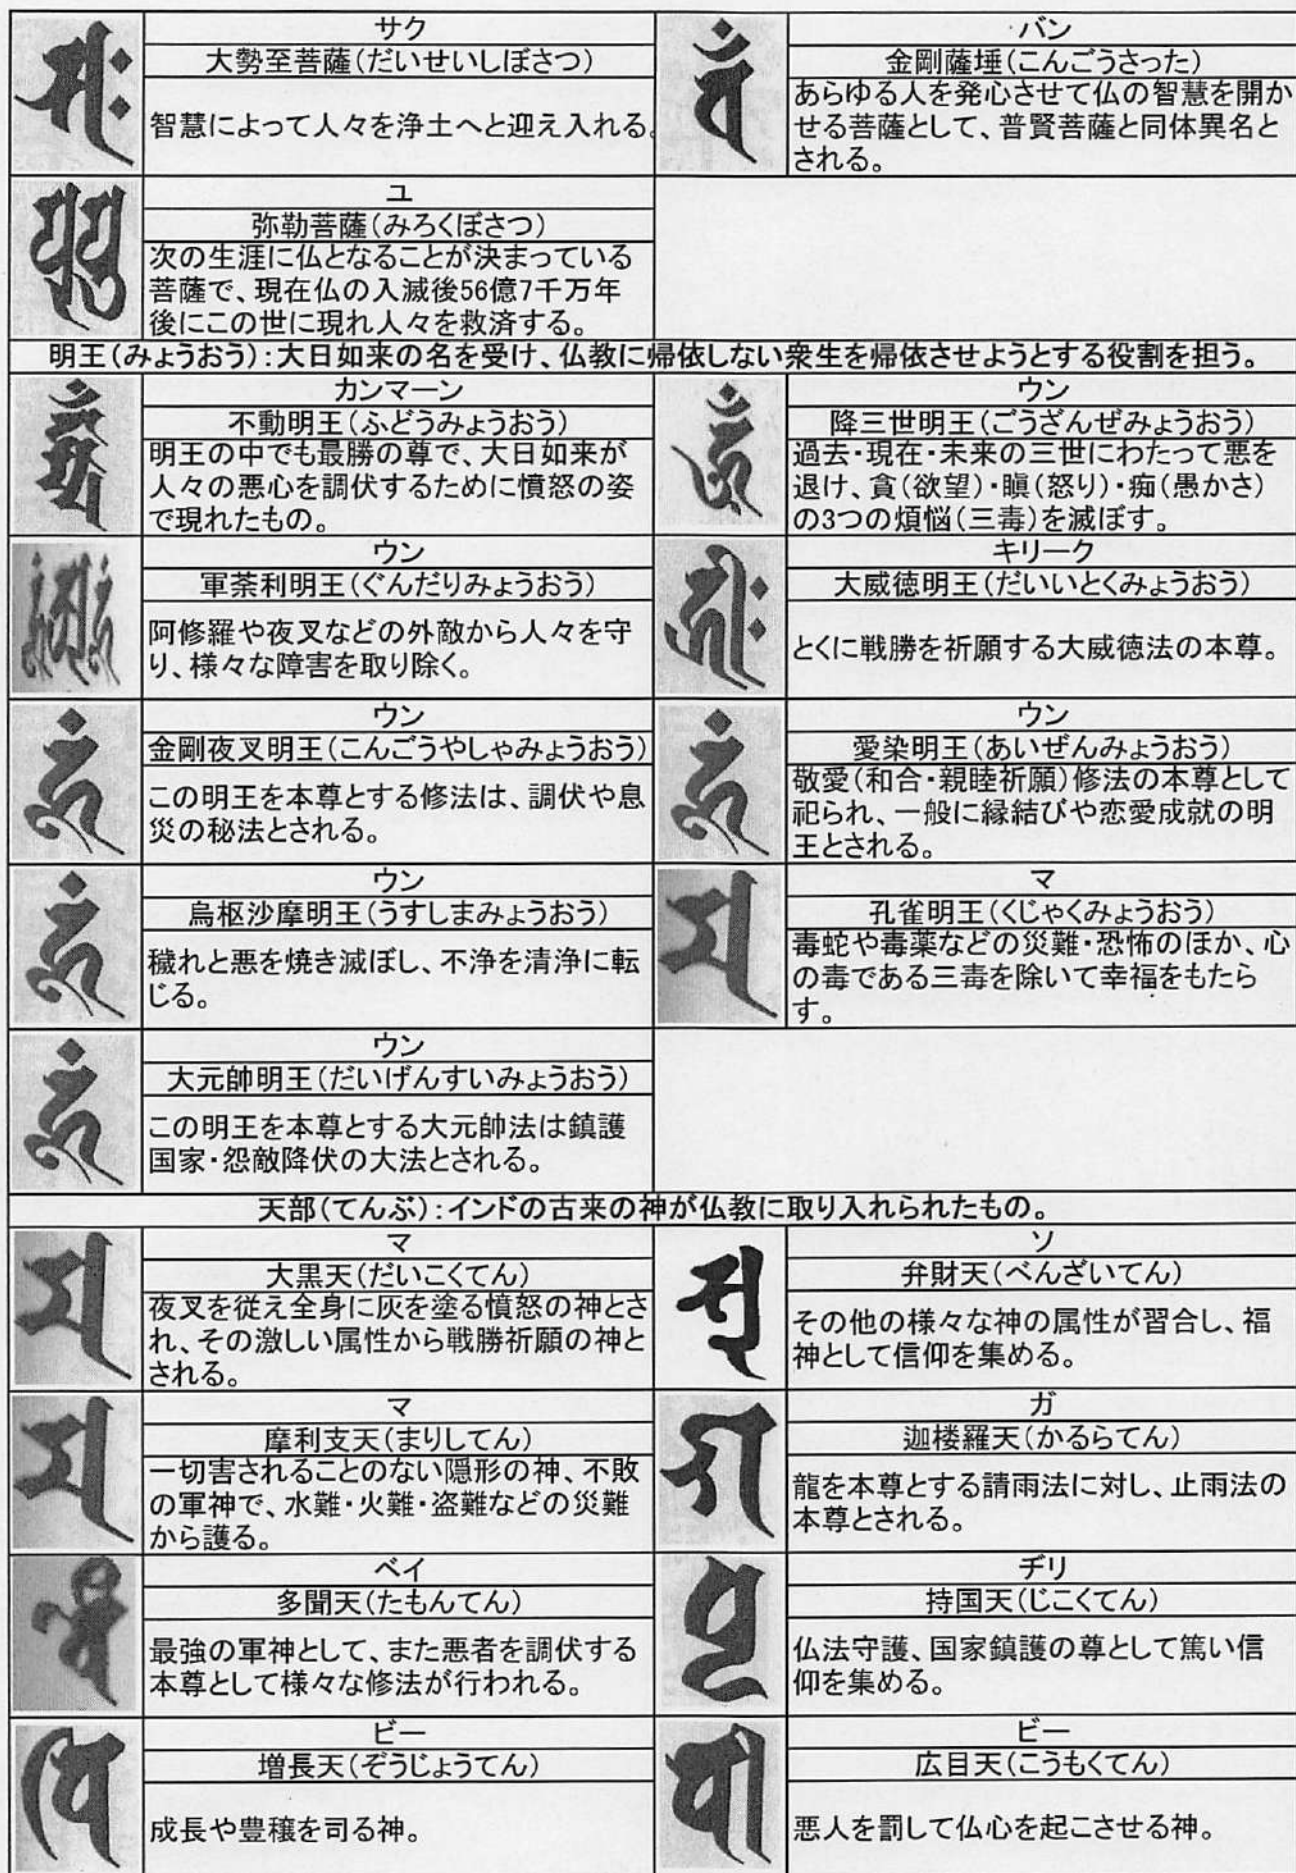 サク
大勢至菩薩(だいせいしぼさつ)
智慧によって人々を浄土へと迎え入れる。
バン
金剛薩埵(こんごうさった)
あらゆる人を発心させて仏の智慧を開か
せる菩薩として、普賢菩薩と同体異名と
される。
ユ
弥勒菩薩(みろくぼさつ)
次の生涯に仏となることが決まっている
菩薩で、現在仏の入滅後56億7千万年
後にこの世に現れ人々を救済する。
明王(みょうおう):大日如来の名を受け、仏教に帰依しない衆生を帰依させようとする役割を担う。
カンマーン
不動明王(ふどうみょうおう)
明王の中でも最勝の尊で、大日如来が
人々の悪心を調伏するために憤怒の姿
で現れたもの。
ウン
降三世明王(ごうざんぜみょうおう)
過去・現在・未来の三世にわたって悪を
退け、貪(欲望)・瞋(怒り)・痴(愚かさ)
の3つの煩悩(三毒)を滅ぼす。
ウン
軍荼利明王(ぐんだりみょうおう)
阿修羅や夜叉などの外敵から人々を守
り、様々な障害を取り除く。
キリーク
大威徳明王(だいいとくみょうおう)
とくに戦勝を祈願する大威徳法の本尊。
ウン
金剛夜叉明王(こんごうやしゃみょうおう)
この明王を本尊とする修法は、調伏や息
災の秘法とされる。
ウン
愛染明王(あいぜんみょうおう)
敬愛(和合・親睦祈願)修法の本尊として
祀られ、一般に縁結びや恋愛成就の明
王とされる。
ウン
烏枢沙摩明王(うすしまみょうおう)
穢れと悪を焼き滅ぼし、不浄を清浄に転
じる。
マ
孔雀明王(くじゃくみょうおう)
毒蛇や毒薬などの災難・恐怖のほか、心
の毒である三毒を除いて幸福をもたら
す。
ウン
大元帥明王(だいげんすいみょうおう)
この明王を本尊とする大元帥法は鎮護
国家・怨敵降伏の大法とされる。
天部(てんぶ):インドの古来の神が仏教に取り入れられたもの。
マ
大黒天(だいこくてん)
夜叉を従え全身に灰を塗る憤怒の神とさ
れ、その激しい属性から戦勝祈願の神と
される。
ソ
弁財天(べんざいてん)
その他の様々な神の属性が習合し、福
神として信仰を集める。
マ
摩利支天(まりしてん)
一切害されることのない隠形の神、不敗
の軍神で、水難・火難・盗難などの災難
から護る。
ガ
迦楼羅天(かるらてん)
龍を本尊とする請雨法に対し、止雨法の
本尊とされる。
ベイ
多聞天(たもんてん)
最強の軍神として、また悪者を調伏する
本尊として様々な修法が行われる。
ヂリ
持国天(じこくてん)
仏法守護、国家鎮護の尊として篤い信
仰を集める。
ビー
増長天(ぞうじょうてん)
成長や豊穣を司る神。
ビー
広目天(こうもくてん)
悪人を罰して仏心を起こさせる神。